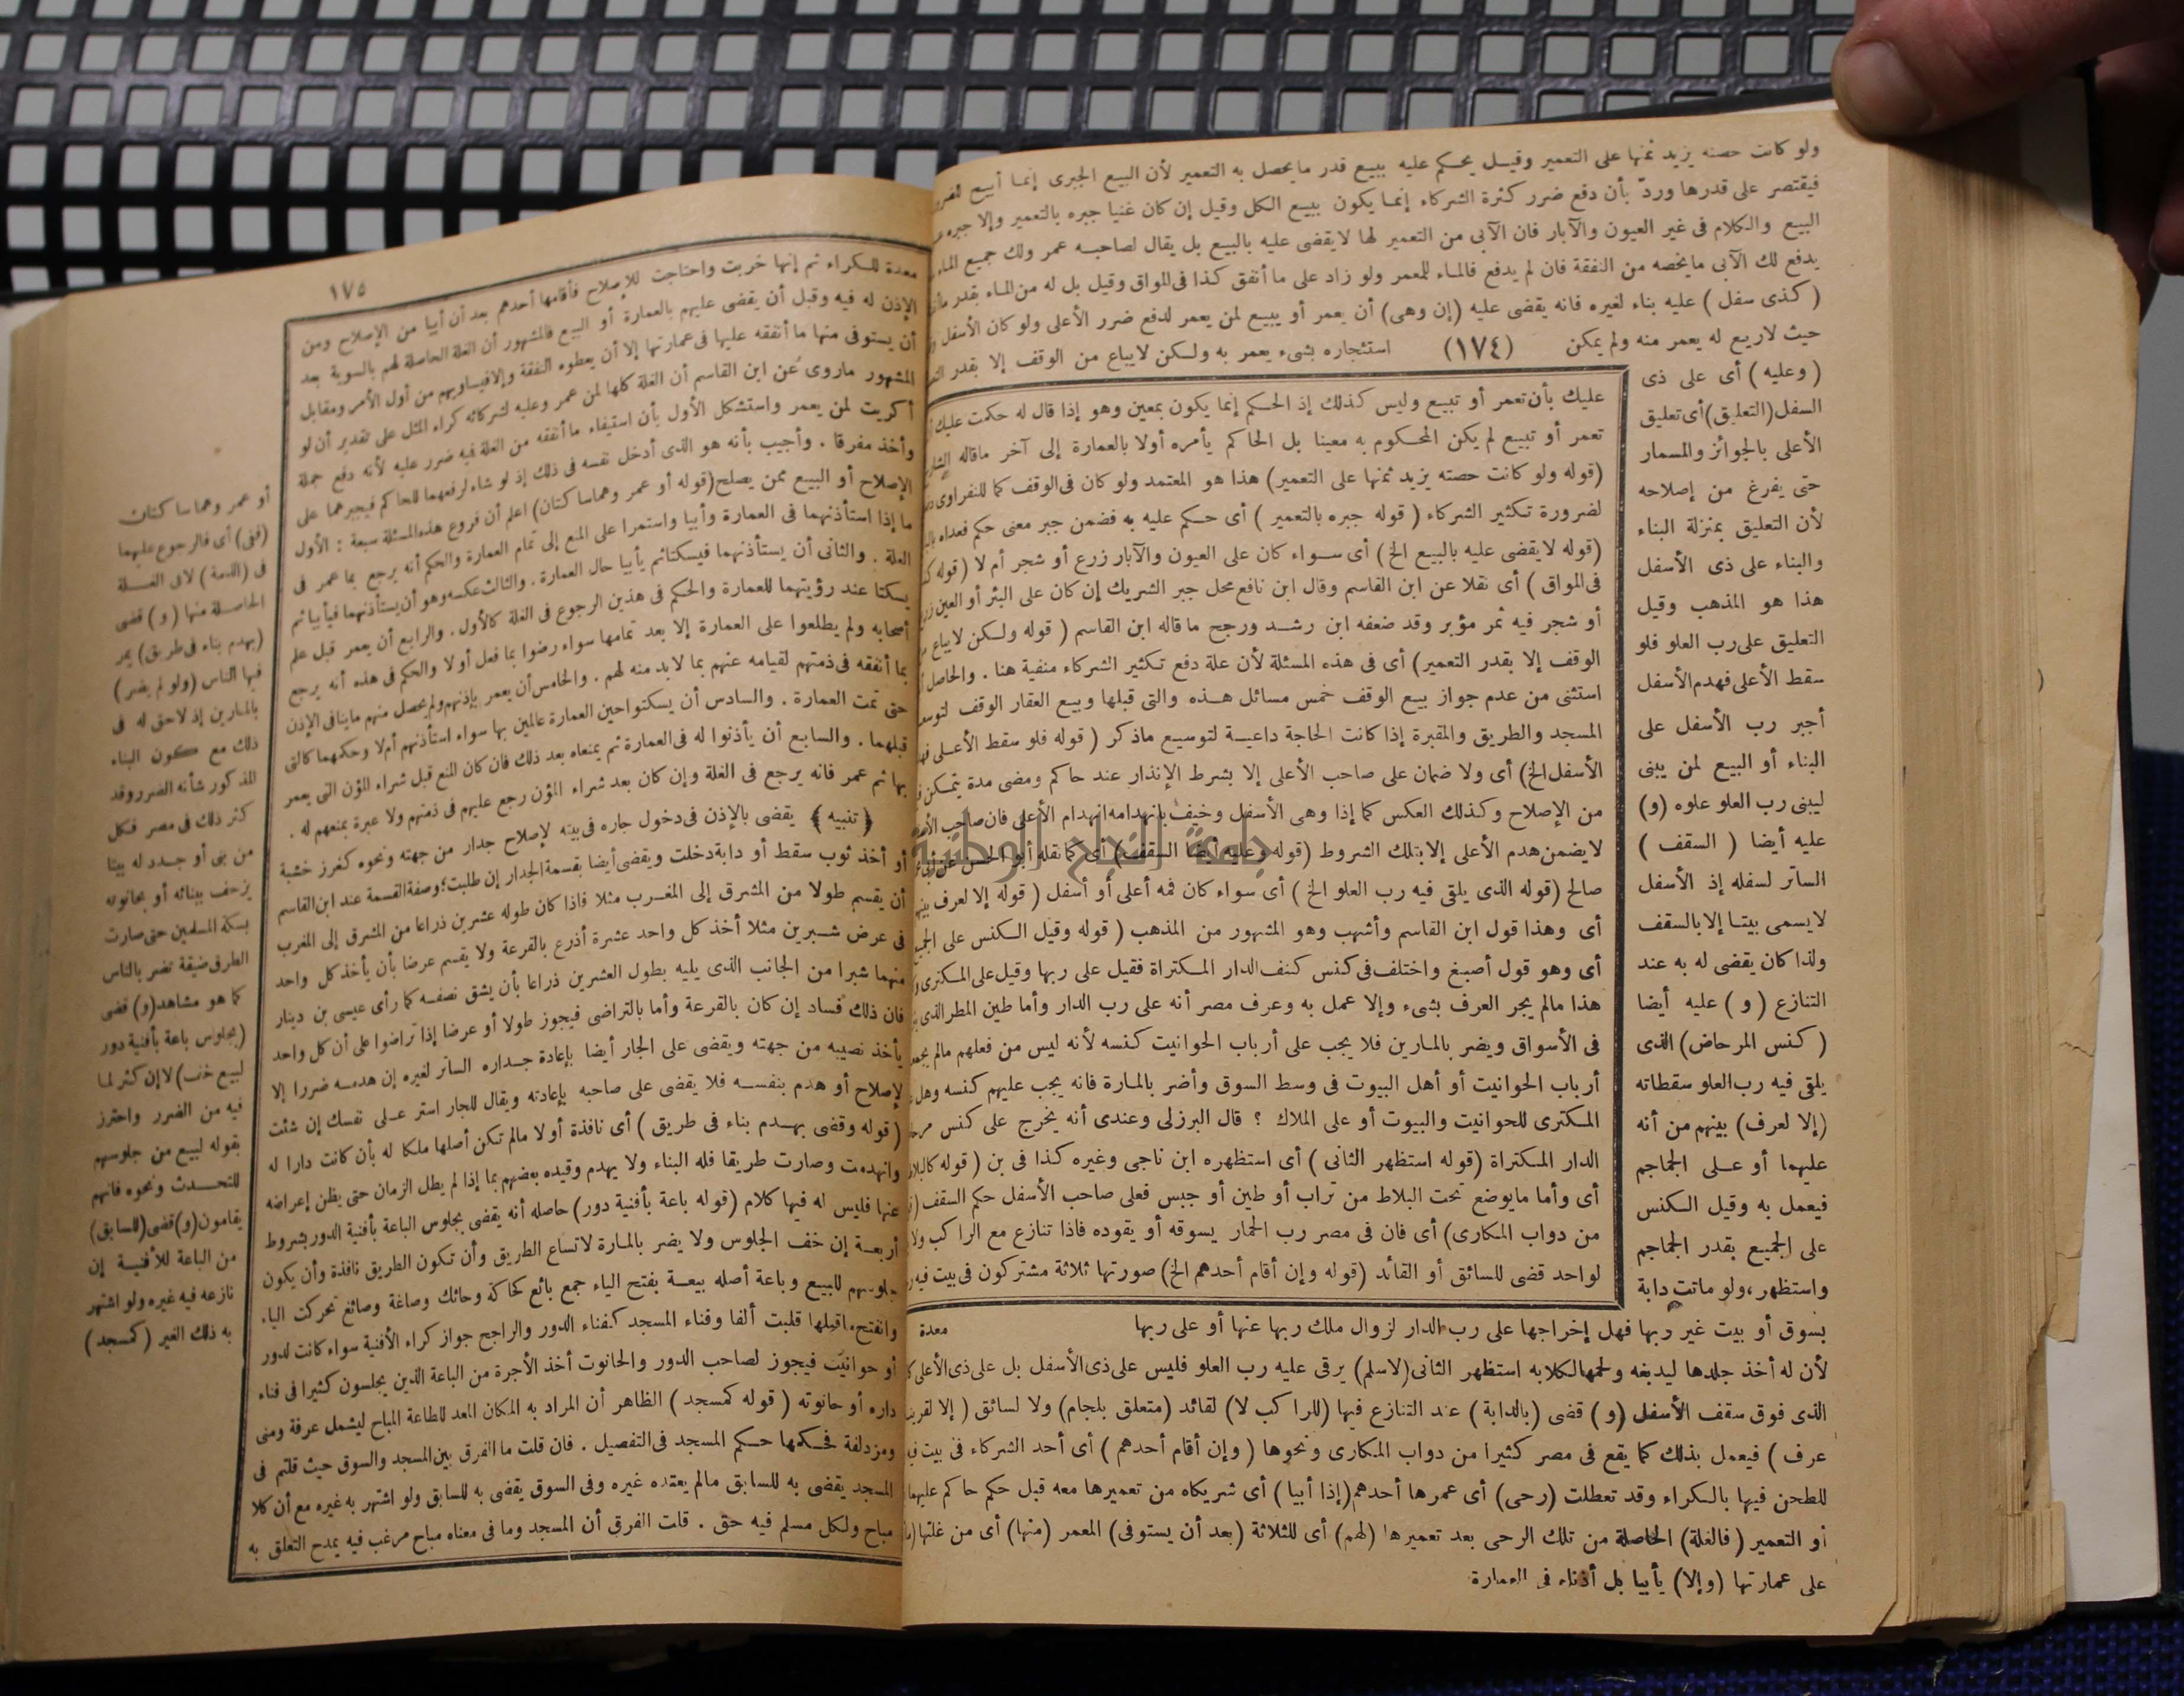 ولو كانت حصته يزيد ثمنها على التعمير وقيل يحكم عليه ببيع قدر ما يحصل به التعمير لأن البيع الجبرى إنما أبيع
فيقتصر على قدرها وردّ بأن دفع ضرر كثرة الشركاء إنما يكون ببيع الكل وقيل إن كان غنيا جبره بالتعمير وإلا جبره
البيع والكلام فى غير العيون والآبار فان الآبى من التعمير لها لا يقضى عليه بالبيع بل يقال لصاحبه عمر ولك جميع الماء
يدفع لك الآبى ما يخصه من النفقة فان لم يدفع فالماء للمعمر ولو زاد على ما أنفق كذا فى المواق وقيل بل له من الماء بقدر
( كذى سفل ) عليه بناء لغيره فانه يقضى عليه (إن وهى) أن يعمر أو يبيع لمن يعمر لدفع ضرر الأعلى ولو كان الأسفل
حيث لاريع له يعمر منه ولم يمكن (١٧٤) استئجاره بشىء يعمر به ولكن لايباع من الوقف إلا بقدر
( وعليه ) أى على ذى
السفل (التعليق) أى تعليق
الأعلى بالجوائز والمسمار
حتى يفرغ من إصلاحه
لأن التعليق بمنزلة البناء
والبناء على ذى الأسفل
هذا هو المذهب وقيل
التعليق على رب العلو فلو
سقط الأعلى فهدم الأسفل
أجبر رب الأسفل على
البناء أو البيع لمن يبنى
ليبنى رب العلو علوه (و)
عليه أيضا ( السقف )
الساتر لسفله إذ الأسفل
لايسمى بيتا إلا بالسقف
ولذا كان يقضى له به عند
التنازع ( و ) عليه أيضا
( كنس المرحاض) الذى
يلقى فيه رب العلو سقطاته
(إلا لعرف) بينهم من أنه
عليهما أو على الجماجم
فيعمل به وقيل الكنس
على الجميع بقدر الجماجم
واستظهر، ولو ماتت دابة
عليك بأن تعمر أو تبيع وليس كذلك إذ الحكم إنما يكون بمعين وهو إذا قال له حكمت عليك
تعمر أو تبيع لم يكن المحكوم به معينا بل الحاكم يأمره أولا بالعمارة إلى آخر ماقاله الشارح
(قوله ولو كانت حصته يزيد ثمنها على التعمير) هذا هو المعتمد ولو كان فى الوقف كما للنفراوى
لضرورة تكثير الشركاء ( قوله جبره بالتعمير ) أى حكم عليه به فضمن جبر معنى حكم فعداه
(قوله لا يقضى عليه بالبيع الخ) أى سواء كان على العيون والآبار زرع أو شجر أم لا ( قوله
فى المواق ) أى نقلا عن ابن القاسم وقال ابن نافع محل جبر الشريك إن كان على البئر أو العين
أو شجر فيه ثمر مؤبر وقد ضعفه ابن رشد ورجح ما قاله ابن القاسم ( قوله ولكن لايباع
الوقف إلا بقدر التعمير) أى فى هذه المسئلة لأن علة دفع تكثير الشركاء منفية هنا . والحاصل
استثنى من عدم جواز بيع الوقف خمس مسائل هذه والتى قبلها وبيع العقار الوقف
المسجد والطريق والمقبرة إذا كانت الحاجة داعية لتوسيع ماذكر ( قوله فلو سقط الأعلى
الأسفل الخ) أى ولا ضمان على صاحب الأعلى إلا بشرط الإنذار عند حاكم ومضى مدة يتمكن
من الإصلاح وكذلك العكس كما إذا وهى الأسفل وخيف بانهدامه انهدام الأعلى فان صاحب
لا يضمن هدم الأعلى إلا بتلك الشروط (قوله وعليه أيضا السقف) أى كما نقله أبو الحسن عن
صالح (قوله الذى يلقى فيه رب العلو الخ ) أى سواء كان فمه أعلى أو أسفل ( قوله إلا لعرف
أى وهذا قول ابن القاسم وأشهب وهو المشهور من المذهب ( قوله وقيل الكنس على
أى وهو قول أصبغ واختلف فى كنس كنف الدار المكتراة فقيل على ربها وقيل على المكترى
هذا مالم يجر العرف بشىء وإلا عمل به وعرف مصر أنه على رب الدار وأما طين المطر الذى
فى الأسواق ويضر بالمارين فلا يجب على أرباب الحوانيت كنسه لأنه ليس من فعلهم مالم
أرباب الحوانيت أو أهل البيوت فى وسط السوق وأضر بالمارة فانه يجب عليهم كنسه وهل
المكترى للحوانيت والبيوت أو على الملاك ؟ قال البرزلى وعندى أنه يخرج على كنس
الدار المكتراة (قوله استظهر الثانى ) أى استظهره ابن ناجى وغيره كذا فى بن ( قوله
أى وأما مايوضع تحت البلاط من تراب أو طين أو جبس فعلى صاحب الأسفل حكم السقف
من دواب المكارى) أى فان فى مصر رب الحمار يسوقه أو يقوده فاذا تنازع مع الراكب
لواحد قضى للسائق أو القائد (قوله وإن أقام أحدهم الخ) صورتها ثلاثة مشتركون فى بيت فيه
بسوق أو بيت غير ربها فهل إخراجها على رب الدار لزوال ملك ربها عنها أو على ربها معدة
لأن له أخذ جلدها ليدبغه ولحمها لكلابه استظهر الثانى (لاسلم) يرقى عليه رب العلو فليس على ذى الأسفل بل على ذى الأعلى
الذى فوق سقف الأسفل (و) قضى (بالدابة) عند التنازع فيها (للراكب لا) لقائد (متعلق بلجام) ولا لسائق ( إلا
عرف ) فيعمل بذلك كما يقع فى مصر كثيرا من دواب المكارى ونحوها ( وإن أقام أحدهم ) أى أحد الشركاء فى بيت
للطحن فيها بالكراء وقد تعطلت (رحى) أى عمرها أحدهم (إذا أبيا) أى شريكاه من تعميرها معه قبل حكم حاكم عليهما
أو التعمير (فالغلة) الحاصلة من تلك الرحى بعد تعميرها (لهم) أى للثلاثة (بعد أن يستوفى) المعمر (منها) أى من غلتها
على عمارتها (وإلا) يأبيا بل أذناه فى العمارة
١٧٥
معدة للكراء ثم إنها خربت واحتاجت للإصلاح فأقامها أحدهم بعد أن أبيا من الإصلاح ومن
الإذن له فيه وقبل أن يقضى عليهم بالعمارة أو البيع فالمشهور أن الغلة الحاصلة لهم بالسوية بعد
أن يستوفى منها ما أنفقه عليها فى عمارتها إلا أن يعطوه النفقة وإلا فيساويهم من أول الأمر ومقابل
المشهور ماروى عن ابن القاسم أن الغلة كلها لمن عمر وعليه لشركائه كراء المثل على تقدير أن لو
أكريت لمن يعمر واستشكل الأول بأن استيفاء ما أنفقه من الغلة فيه ضرر عليه لأنه دفع جملة
وأخذ مفرقا . وأجيب بأنه هو الذى أدخل نفسه فى ذلك إذ لو شاء لرفعهما للحاكم فيجبرهما على
الإصلاح أو البيع ممن يصلح (قوله أو عمر وهما ساكتان) اعلم أن فروع هذه المسئلة سبعة : الأول
ما إذا استأذنهما فى العمارة وأبيا واستمرا على المنع إلى تمام العمارة والحكم أنه يرجع بما عمر فى
الغلة . والثانى أن يستأذنهما فيسكتا ثم يأبيا حال العمارة . والثالث عكسه وهو أن يستأذنهما فيأبيا ثم
يسكتا عند رؤيتهما للعمارة والحكم فى هذين الرجوع فى الغلة كالأول . والرابع أن يعمر قبل علم
أصحابه ولم يطلعوا على العمارة إلا بعد تمامها سواء رضوا بما فعل أو لا والحكم فى هذه أنه يرجع
بما أنفقه فى ذمتهم لقيامه عنهم بما لابد منه لهم . والخامس أن يعمر بإذنهم ولم يحصل منهم ماينافى الإذن
حتى تمت العمارة . والسادس أن يسكتوا حين العمارة عالمين بها سواء استأذنهم أم لا وحكمهما كالتى
قبلهما . والسابع أن يأذنوا له فى العمارة ثم يمنعاه بعد ذلك فان كان المنع قبل شراء المؤن التى يعمر
بها ثم عمر فانه يرجع فى الغلة وإن كان بعد شراء المؤن رجع عليهم فى ذمتهم ولا عبرة بمنعهم له .
﴿ تنبيه ﴾ يقضى بالإذن فى دخول جاره فى بيته لإصلاح جدار من جهته ونحوه كغرز خشبة
أو أخذ ثوب سقط أو دابة دخلت ويقضى أيضا بقسمة الجدار إن طلبت؛ وصفة القسمة عند ابن القاسم
أن يقسم طولا من المشرق إلى المغرب مثلا فاذا كان طوله عشرين ذراعا من المشرق إلى المغرب
فى عرض شبرين مثلا أخذ كل واحد عشرة أذرع بالقرعة ولا يقسم عرضا بأن يأخذ كل واحد
منهما شبرا من الجانب الذى يليه بطول العشرين ذراعا بأن يشق نصفه كما رأى عيسى بن دينار
فان ذلك فساد إن كان بالقرعة وأما بالتراضى فيجوز طولا أو عرضا إذا تراضوا على أن كل واحد
يأخذ نصيبه من جهته ويقضى على الجار أيضا بإعادة جداره الساتر لغيره إن هدمه ضررا إلا
لإصلاح أو هدم بنفسه فلا يقضى على صاحبه بإعادته ويقال للجار استر على نفسك إن شئت
( قوله وقضى بهدم بناء فى طريق ) أى نافذة أو لا مالم تكن أصلها ملكا له بأن كانت دارا له
وانهدمت وصارت طريقا فله البناء ولا يهدم وقيده بعضهم بما إذا لم يطل الزمان حتى يظن إعراضه
عنها فليس له فيها كلام (قوله باعة بأفنية دور) حاصله أنه يقضى بجلوس الباعة بأفنية الدور بشروط
أربعة إن خف الجلوس ولا يضر بالمارة لاتساع الطريق وأن تكون الطريق نافذة وأن يكون
جلوسهم للبيع وباعة أصله بيعة بفتح الياء جمع بائع كحاكة وحائك وصاغة وصائغ تحركت الياء
وانفتح ماقبلها قلبت ألفا وفناء المسجد كفناء الدور والراجح جواز كراء الأفنية سواء كانت لدور
أو حوانيت فيجوز لصاحب الدور والحانوت أخذ الأجرة من الباعة الذين يجلسون كثيرا فى فناء
داره أو حانوته ( قوله كمسجد ) الظاهر أن المراد به المكان المعد للطاعة المباح ليشمل عرفة ومنى
ومزدلفة فحكمها حكم المسجد فى التفصيل . فان قلت ما الفرق بين المسجد والسوق حيث قلتم فى
المسجد يقضى به للسابق مالم يعتده غيره وفى السوق يقضى به للسابق ولو اشتهر به غيره مع أن كلا
مباح ولكل مسلم فيه حق . قلت الفرق أن المسجد وما فى معناه مباح مرغب فيه يمدح التعلق به
أو عمر وهما ساكتان
(ففى) أى فالرجوع عليهما
فى (الذمة) لا فى الغلة
الحاصلة منها (و) قضى
(بهدم بناء فى طريق) يمر
فيها الناس (ولو لم يضر)
بالمارين إذ لا حق له فى
ذلك مع كون البناء
المذكور شأنه الضرر وقد
كثر ذلك فى مصر فكل
من بنى أو جدد له بيتا
يزحف ببنائه أو بحانوته
بسكة المسلمين حتى صارت
الطرق ضيقة تضر بالناس
كما هو مشاهد (و) قضى
(بجلوس باعة بأفنية دور
لبيع خف) لا إن كثر لما
فيه من الضرر واحترز
بقوله لبيع من جلوسهم
للتحدث ونحوه فانهم
يقامون (و) قضى (للسابق)
من الباعة للأفنية إن
نازعه فيه غيره ولو اشتهر
به ذلك الغير (كمسجد)
جامعة النجاح الوطنية